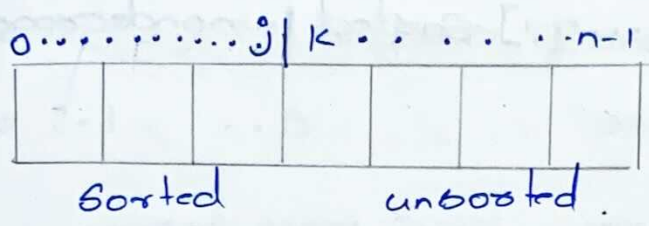 0.............j | k . . . . . . n-1
sorted unsorted.